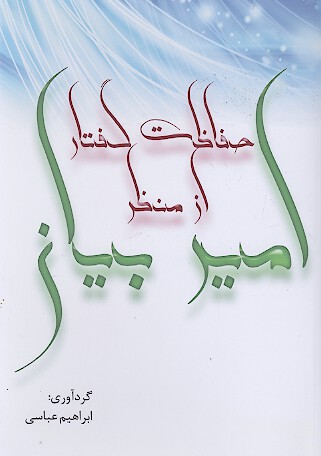 حفاظت گفتار
از منظر
امیر بیان
گردآوری:
ابراهیم عباسی